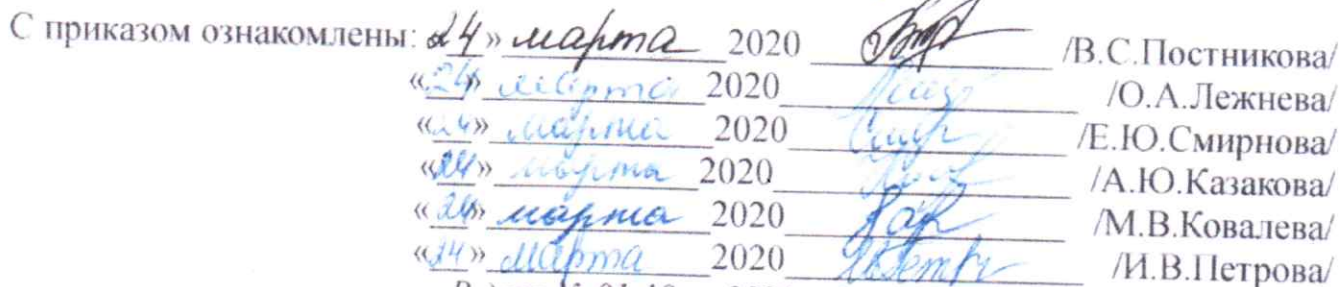 С приказом ознакомлены: 24» марта 2020 /В.С.Постникова/
«24» марта 2020 /О.А.Лежнева/
«24» марта 2020 /Е.Ю.Смирнова/
«24» марта 2020 /А.Ю.Казакова/
«24» марта 2020 /М.В.Ковалева/
«24» марта 2020 /И.В.Петрова/